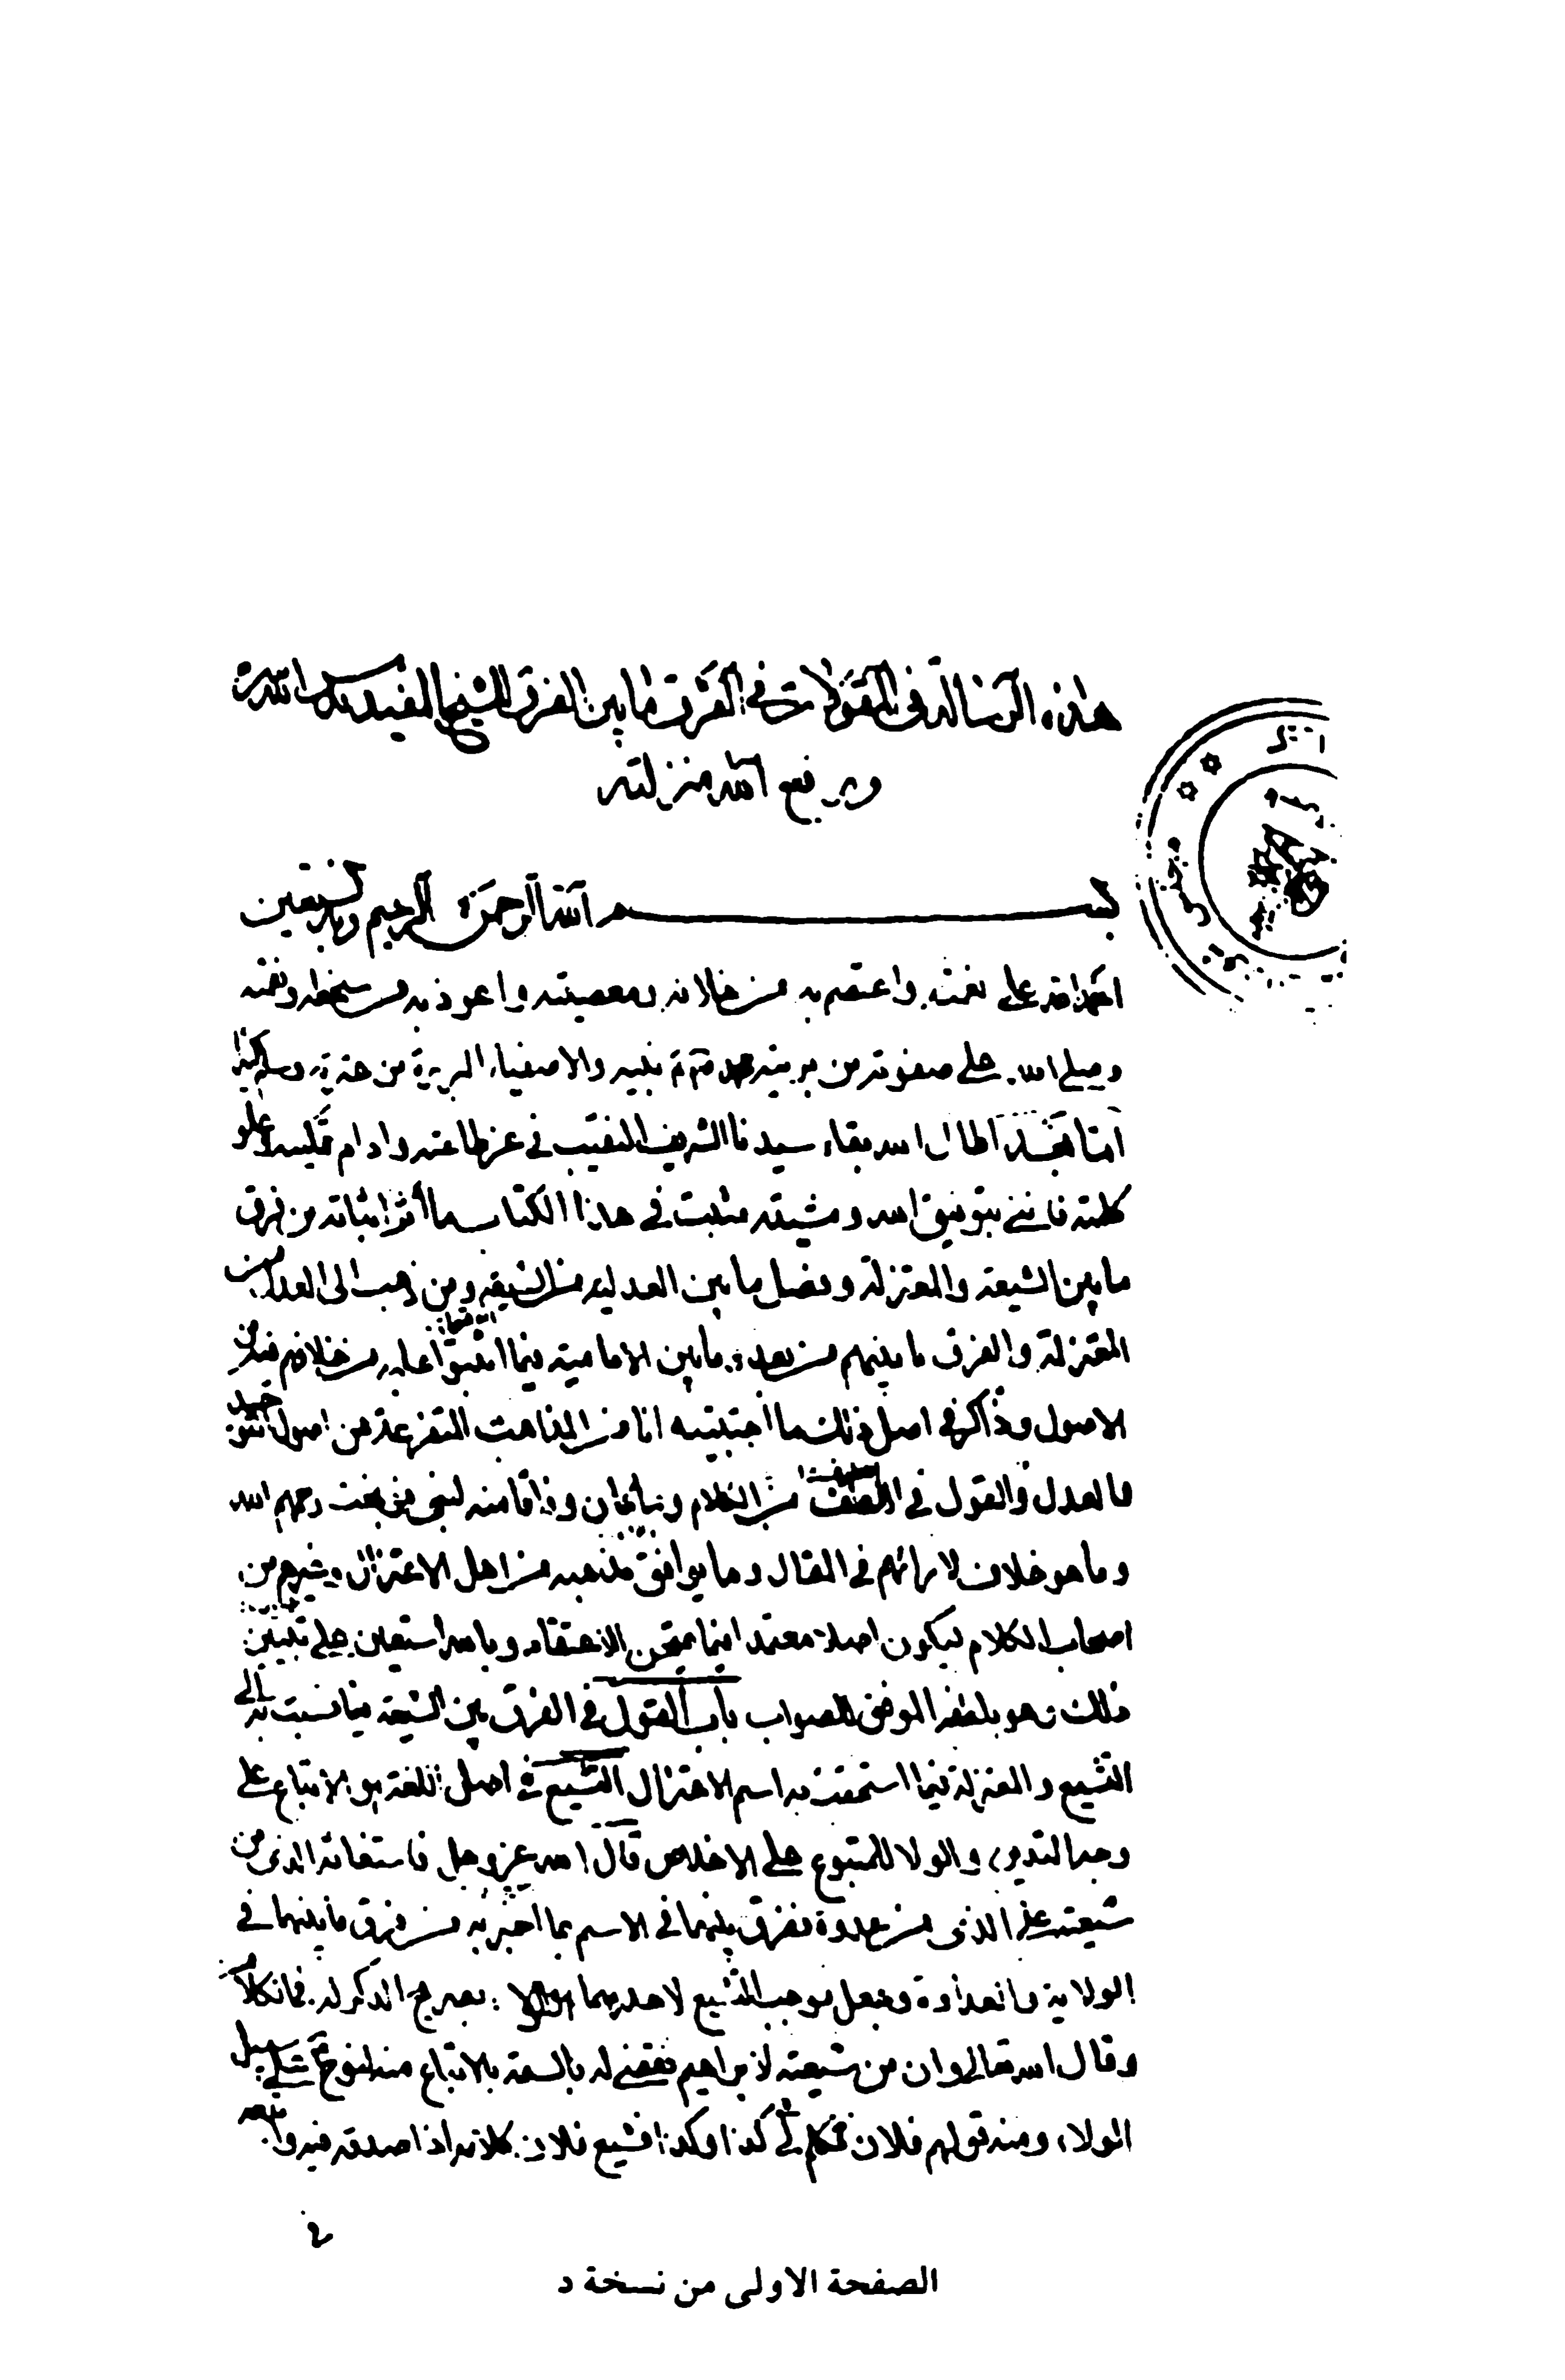 هذه الرسالة في المقولات في الفرق ما بين الفرق للشيخ المفيد
ورفع الله منزلته
بسم الله الرحمن الرحيم وبه نستعين
احمد الله على نعمته واعتصم به من خلافه ومعصيته واعوذ به من سخطه ونقمته
وصلى الله على صفوته من بريته محمد نبيه والاصفياء البررة من عترته وسلم كثيرا
اما بعد اطال الله بقاء سيدنا الشريف النقيب في عز طاعته وادام تمكينه وعلو
كلمته فانني بتوفيق الله ومشيته مثبت في هذا الكتاب ما آثر اثباته من فرق
ما بين الشيعة والمعتزلة وفصل ما بين العدلية من الشيعة ومن ذهب الى العدل من
المعتزلة والفرق ما بينهم من بعد وما بين الامامية فيما اتفقوا عليه من خلافهم فيه من
الاصول وذاكر في اصل ذلك ما اجتبيته انا من المذاهب المتفرعة عن اصول التوحيد
والعدل والقول في اللطيف من الكلام وما كان وفاقا منه لبني نوبخت رحمهم الله
وما هو خلاف لارائهم في المقال وما يوافق مذهبه من اهل الاعتزال وغيرهم من
اصحاب الكلام ليكون اصلا معتمدا فيما يمتحن الاعتقاد وبالله استعين على تبيين
ذلك وهو بلطفه الموفق للصواب باب القول في الفرق بين الشيعة فيما نسبت به الى
التشيع والمعتزلة فيما استحقت به اسم الاعتزال التشيع في اصل اللغة هو الاتباع على
وجه التدين والولا للمتبوع على الاخلاص قال الله عز وجل فاستغاثه الذي من
شيعته على الذي من عدوه ففرق بينهما في الاسم بما اخبر به من فرق ما بينهما في
الولاية والعداوة وجعل موجب التشيع لاحدهما الولا بصريح الذكر له في الكلام
وقال الله تعالى وان من شيعته لابراهيم فقضى له بالسمة بالاتباع منه لنوح على سبيل
الولاء ومنه قولهم فلان تكلم في كذا وكذا فشيع فلان كلامه اذا صدقه فيه واتبعه
الصفحة الاولى من نسخة د